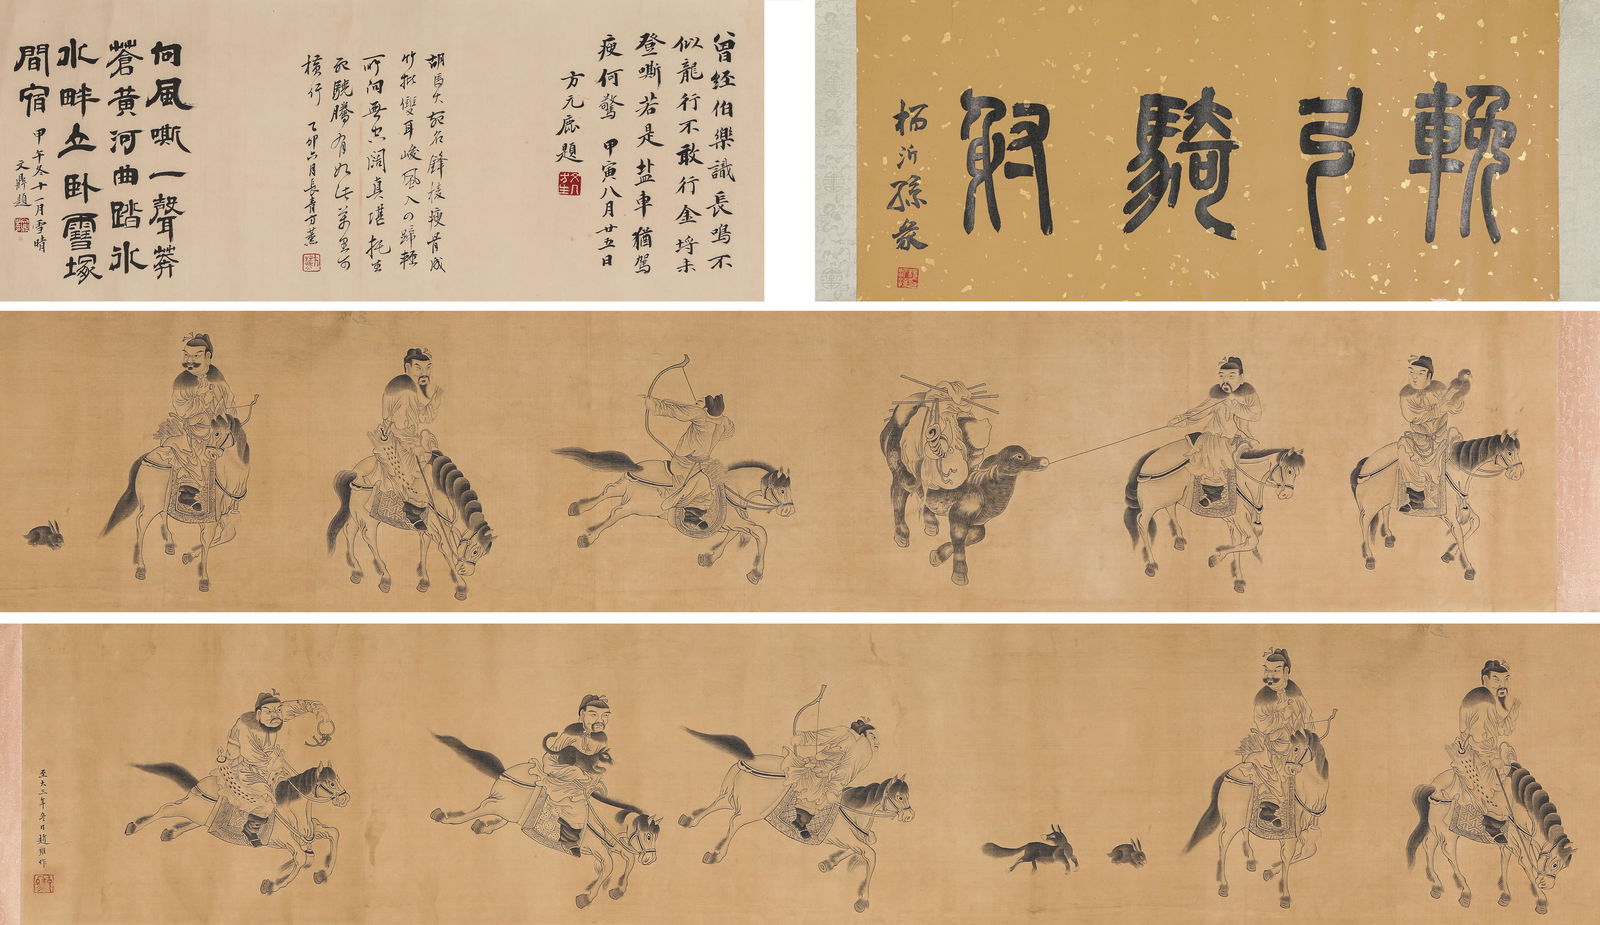 輓弓騎射
楊沂孫篆
曾經伯樂識長鳴不
似龍行不敢行金埒未
登嘶若是盐車猶駕
瘦何驚 甲寅八月廿五日
方元鹿題
胡馬大宛名鋒棱瘦骨成
竹批雙耳峻風入四蹄輕
所向無空闊真堪托生
死驍騰有如此萬里可
橫行 乙卯六月長青方薰
向風嘶一聲莽
蒼黄河曲踏冰
水畔立卧雪塚
間宿 甲午冬十一月雪晴
文鼎題
至大三年春日趙雍作